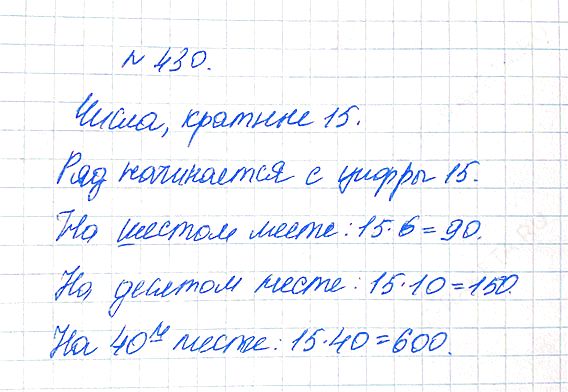 № 430.
Числа, кратные 15.
Ряд начинается с цифры 15.
На шестом месте: 15·6=90.
На десятом месте: 15·10=150.
На 40м месте: 15·40=600.